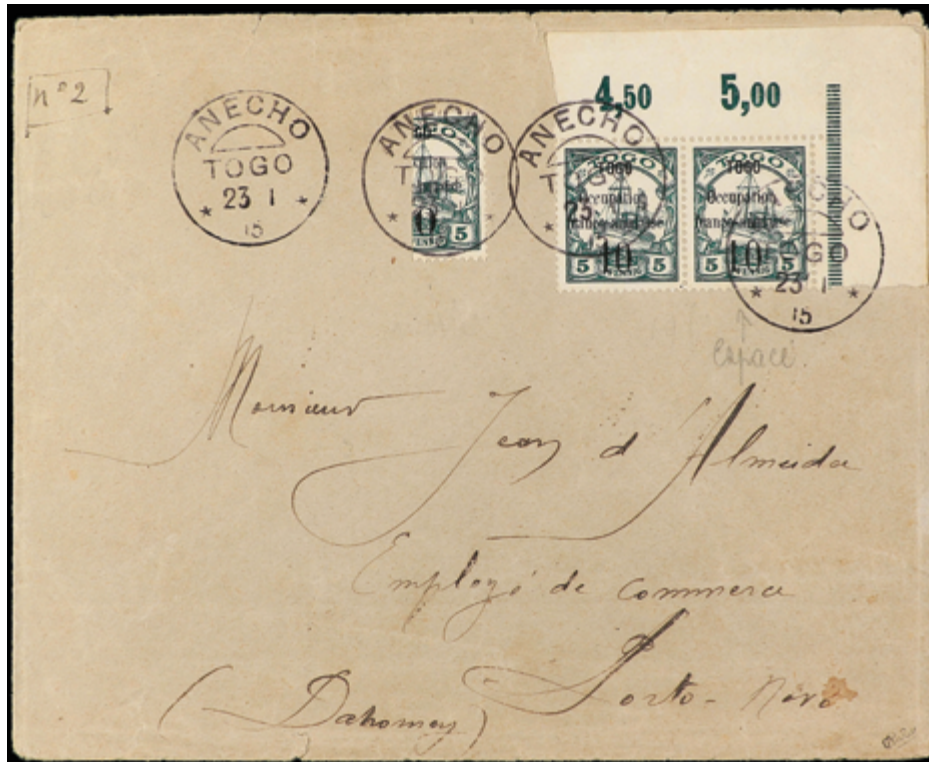 n° 2
ANECHO
TOGO
23 1
15
ANECHO
T
0
5
4,50 5,00
ANECHO
T
23
TOGO
Occupation
franco-anglaise
10
5 PFENNIG 5
TOGO
Occupation
franco-anglaise
10
5 PFENNIG 5
23 1
15
Espacé.
Monsieur Jean d'Almeida
Employé de commerce
Porto-Novo
(Dahomey)